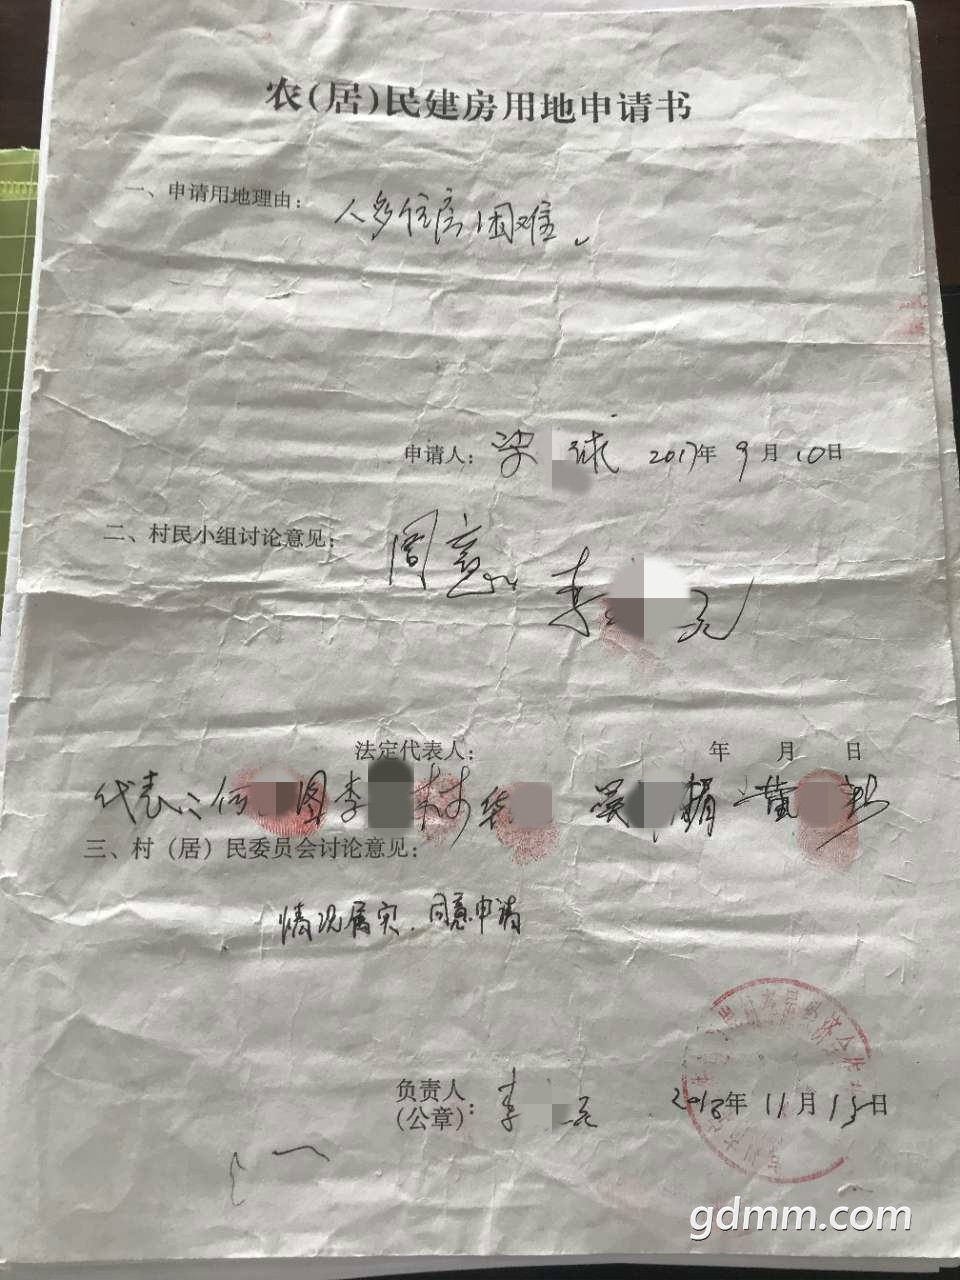 农(居)民建房用地申请书
一、申请用地理由: 人多住房困难。
申请人: 梁 球 2017年9月10日
二、村民小组讨论意见: 同意 李
法定代表人: 年 月 日
代表: 何 图 李 林 华 吴 娟 黄
三、村(居)民委员会讨论意见:
情况属实.同意申请
负责人
(公章): 李 2018年11月15日
gdmm.com